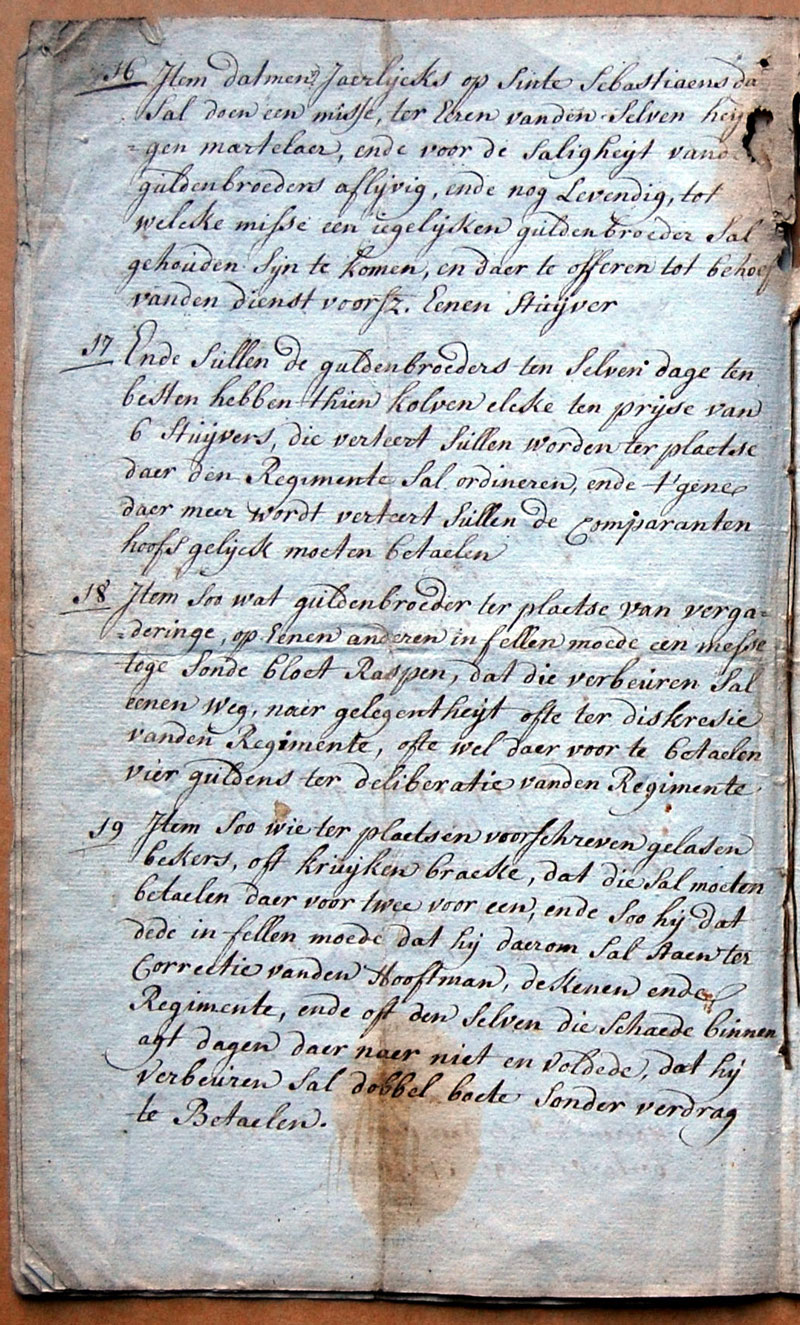 16 Item datmen Jaerlijcks op Sinte Sebastiaens da
Sal doen een misse, ter Eeren vanden Selven hey
=gen martelaer, ende voor de Saligheyt vande
guldenbroeders aflijvig, ende nog Levendig, tot
welcke misse een iegelijcken guldenbroeder Sal
gehouden Sijn te komen, en daer te offeren tot behoef
vanden dienst voorsz. Eenen Stuijver
17 Ende Sullen de guldenbroeders ten Selven dage ten
besten hebben thien kolven elcke ten prijse van
6 Stuijvers, die verteert Sullen worden ter plaetse
daer den Regimente Sal ordineren, ende t'gene
daer meer wordt verteert Sullen de Comparanten
hoofs gelijck moeten betaelen
18 Item Soo wat guldenbroeder ter plaetse van verga=
=deringe, op Eenen anderen in fellen moede een messe
toge Sonde bloet Raspen, dat die verbeuren Sal
eenen weg, naer gelegentheijt ofte ter diskresie
vanden Regimente, ofte wel daer voor te betaelen
vier guldens ter deliberatie vanden Regimente
19 Item Soo wie ter plaetsen voorschreven gelasen
bekers, oft kruijken braeke, dat die Sal moeten
betaelen daer voor twee voor een, ende Soo hij dat
dede in fellen moede dat hij daerom Sal staen ter
Correctie vanden Hooftman, dekenen ende
Regimente, ende oft den Selven die Schaede binnen
agt dagen daer naer niet en voldede, dat hij
verbeuren Sal dobbel boete Sonder verdrag
te Betaelen.